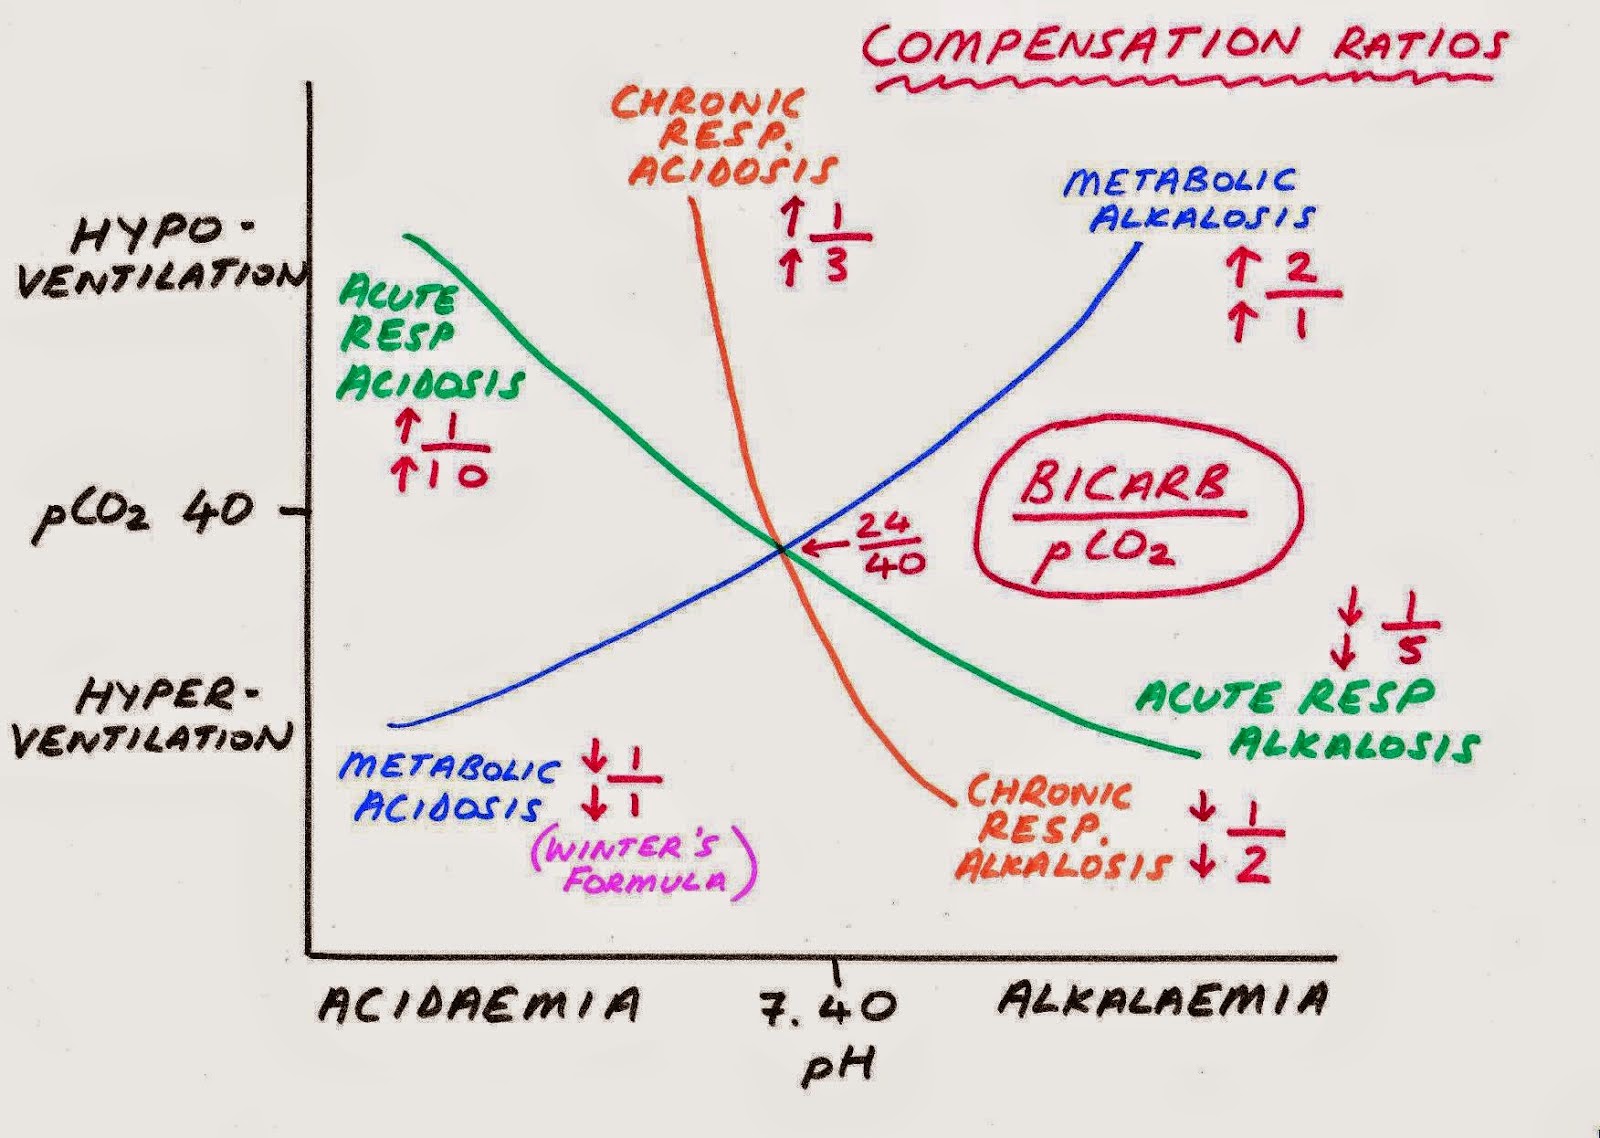 COMPENSATION RATIOS
CHRONIC
RESP.
ACIDOSIS
↑ 1
↑ 3
METABOLIC
ALKALOSIS
↑ 2
↑ 1
HYPO-
VENTILATION
ACUTE
RESP
ACIDOSIS
↑ 1
↑ 10
pCO2 40
← 24
40
BICARB
pCO2
↓ 1
↓ 5
ACUTE RESP
ALKALOSIS
HYPER-
VENTILATION
METABOLIC
ACIDOSIS
↓ 1
↓ 1
(WINTER'S
FORMULA)
CHRONIC
RESP.
ALKALOSIS
↓ 1
↓ 2
ACIDAEMIA
7.40
ALKALAEMIA
pH